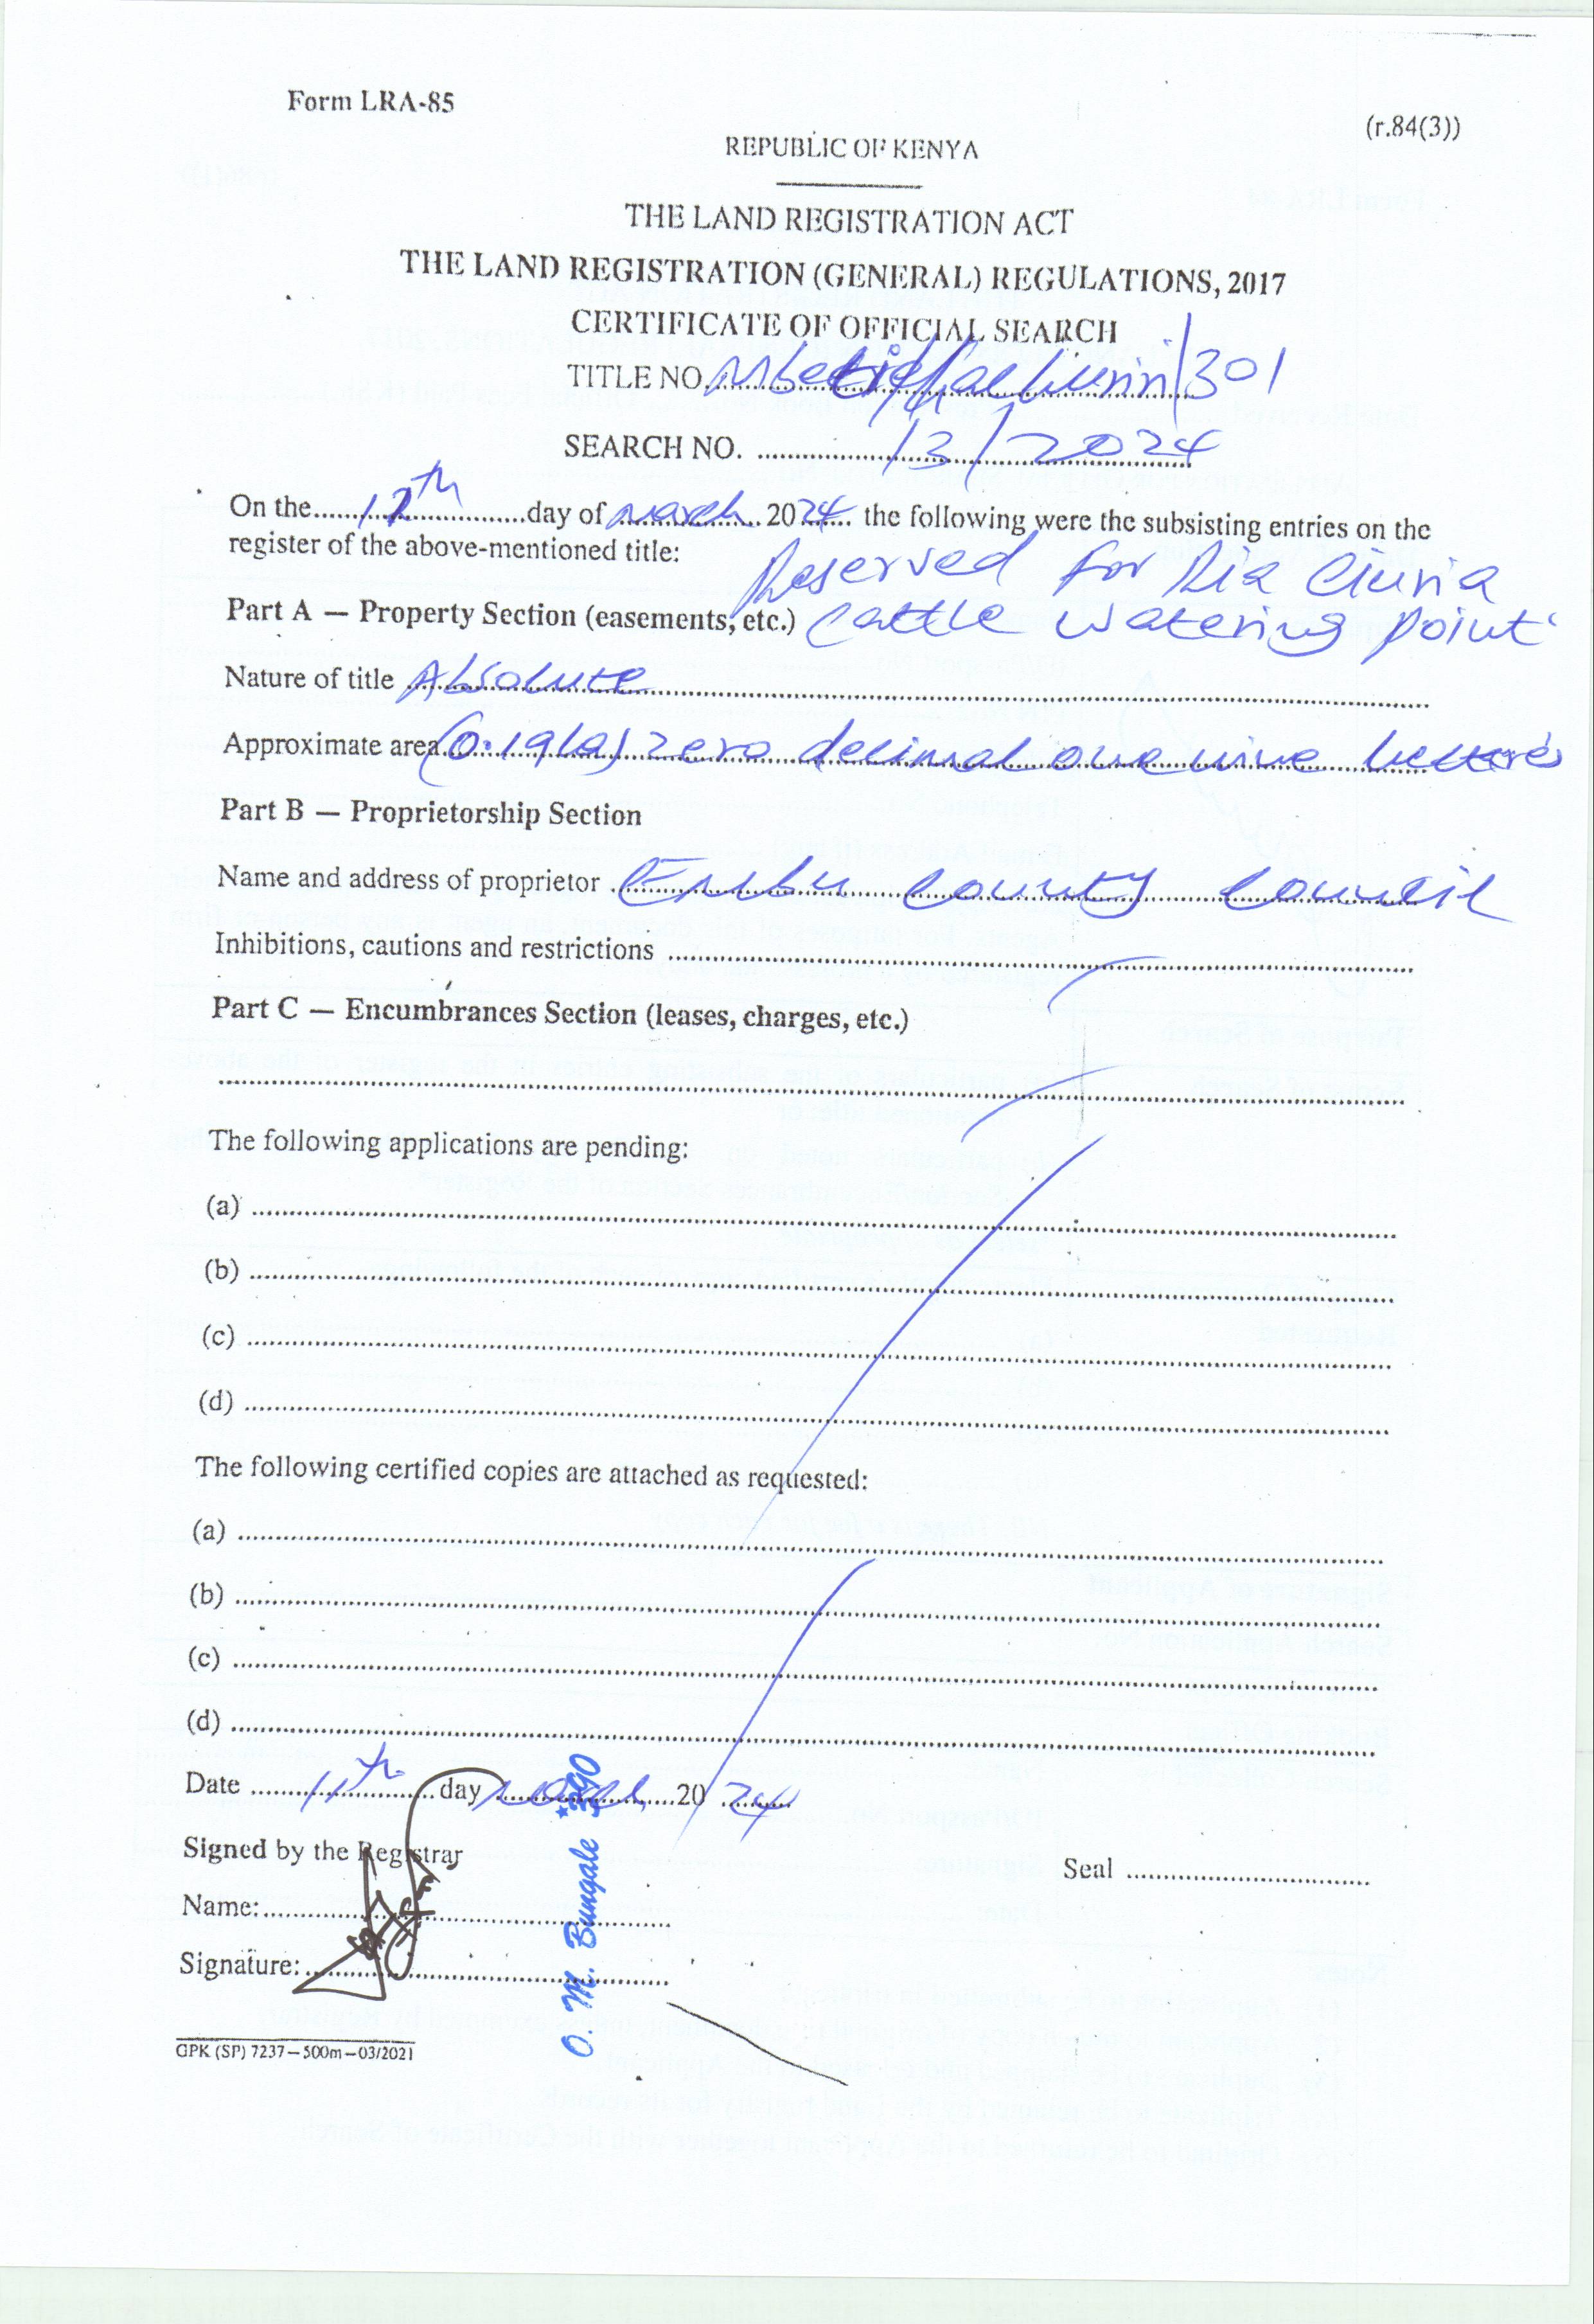 Form LRA-85
(r.84(3))
REPUBLIC OF KENYA
THE LAND REGISTRATION ACT
THE LAND REGISTRATION (GENERAL) REGULATIONS, 2017
CERTIFICATE OF OFFICIAL SEARCH
TITLE NO. /301
SEARCH NO. /3/2024
On the 12th day of March 2024 the following were the subsisting entries on the
register of the above-mentioned title:
Reserved for Ria Ciuria
Part A — Property Section (easements, etc.) Cattle Watering Point
Nature of title Absolute
Approximate area (0.19ha) zero decimal one nine
Part B — Proprietorship Section
Name and address of proprietor Embu County Council
Inhibitions, cautions and restrictions
Part C — Encumbrances Section (leases, charges, etc.)
The following applications are pending:
(a)
(b)
(c)
(d)
The following certified copies are attached as requested:
(a)
(b)
(c)
(d)
Date 11th day March 2024
Signed by the Registrar
Seal
Name:
Signature:
O. M. Bungale *390
GPK (SP) 7237—500m—03/2021